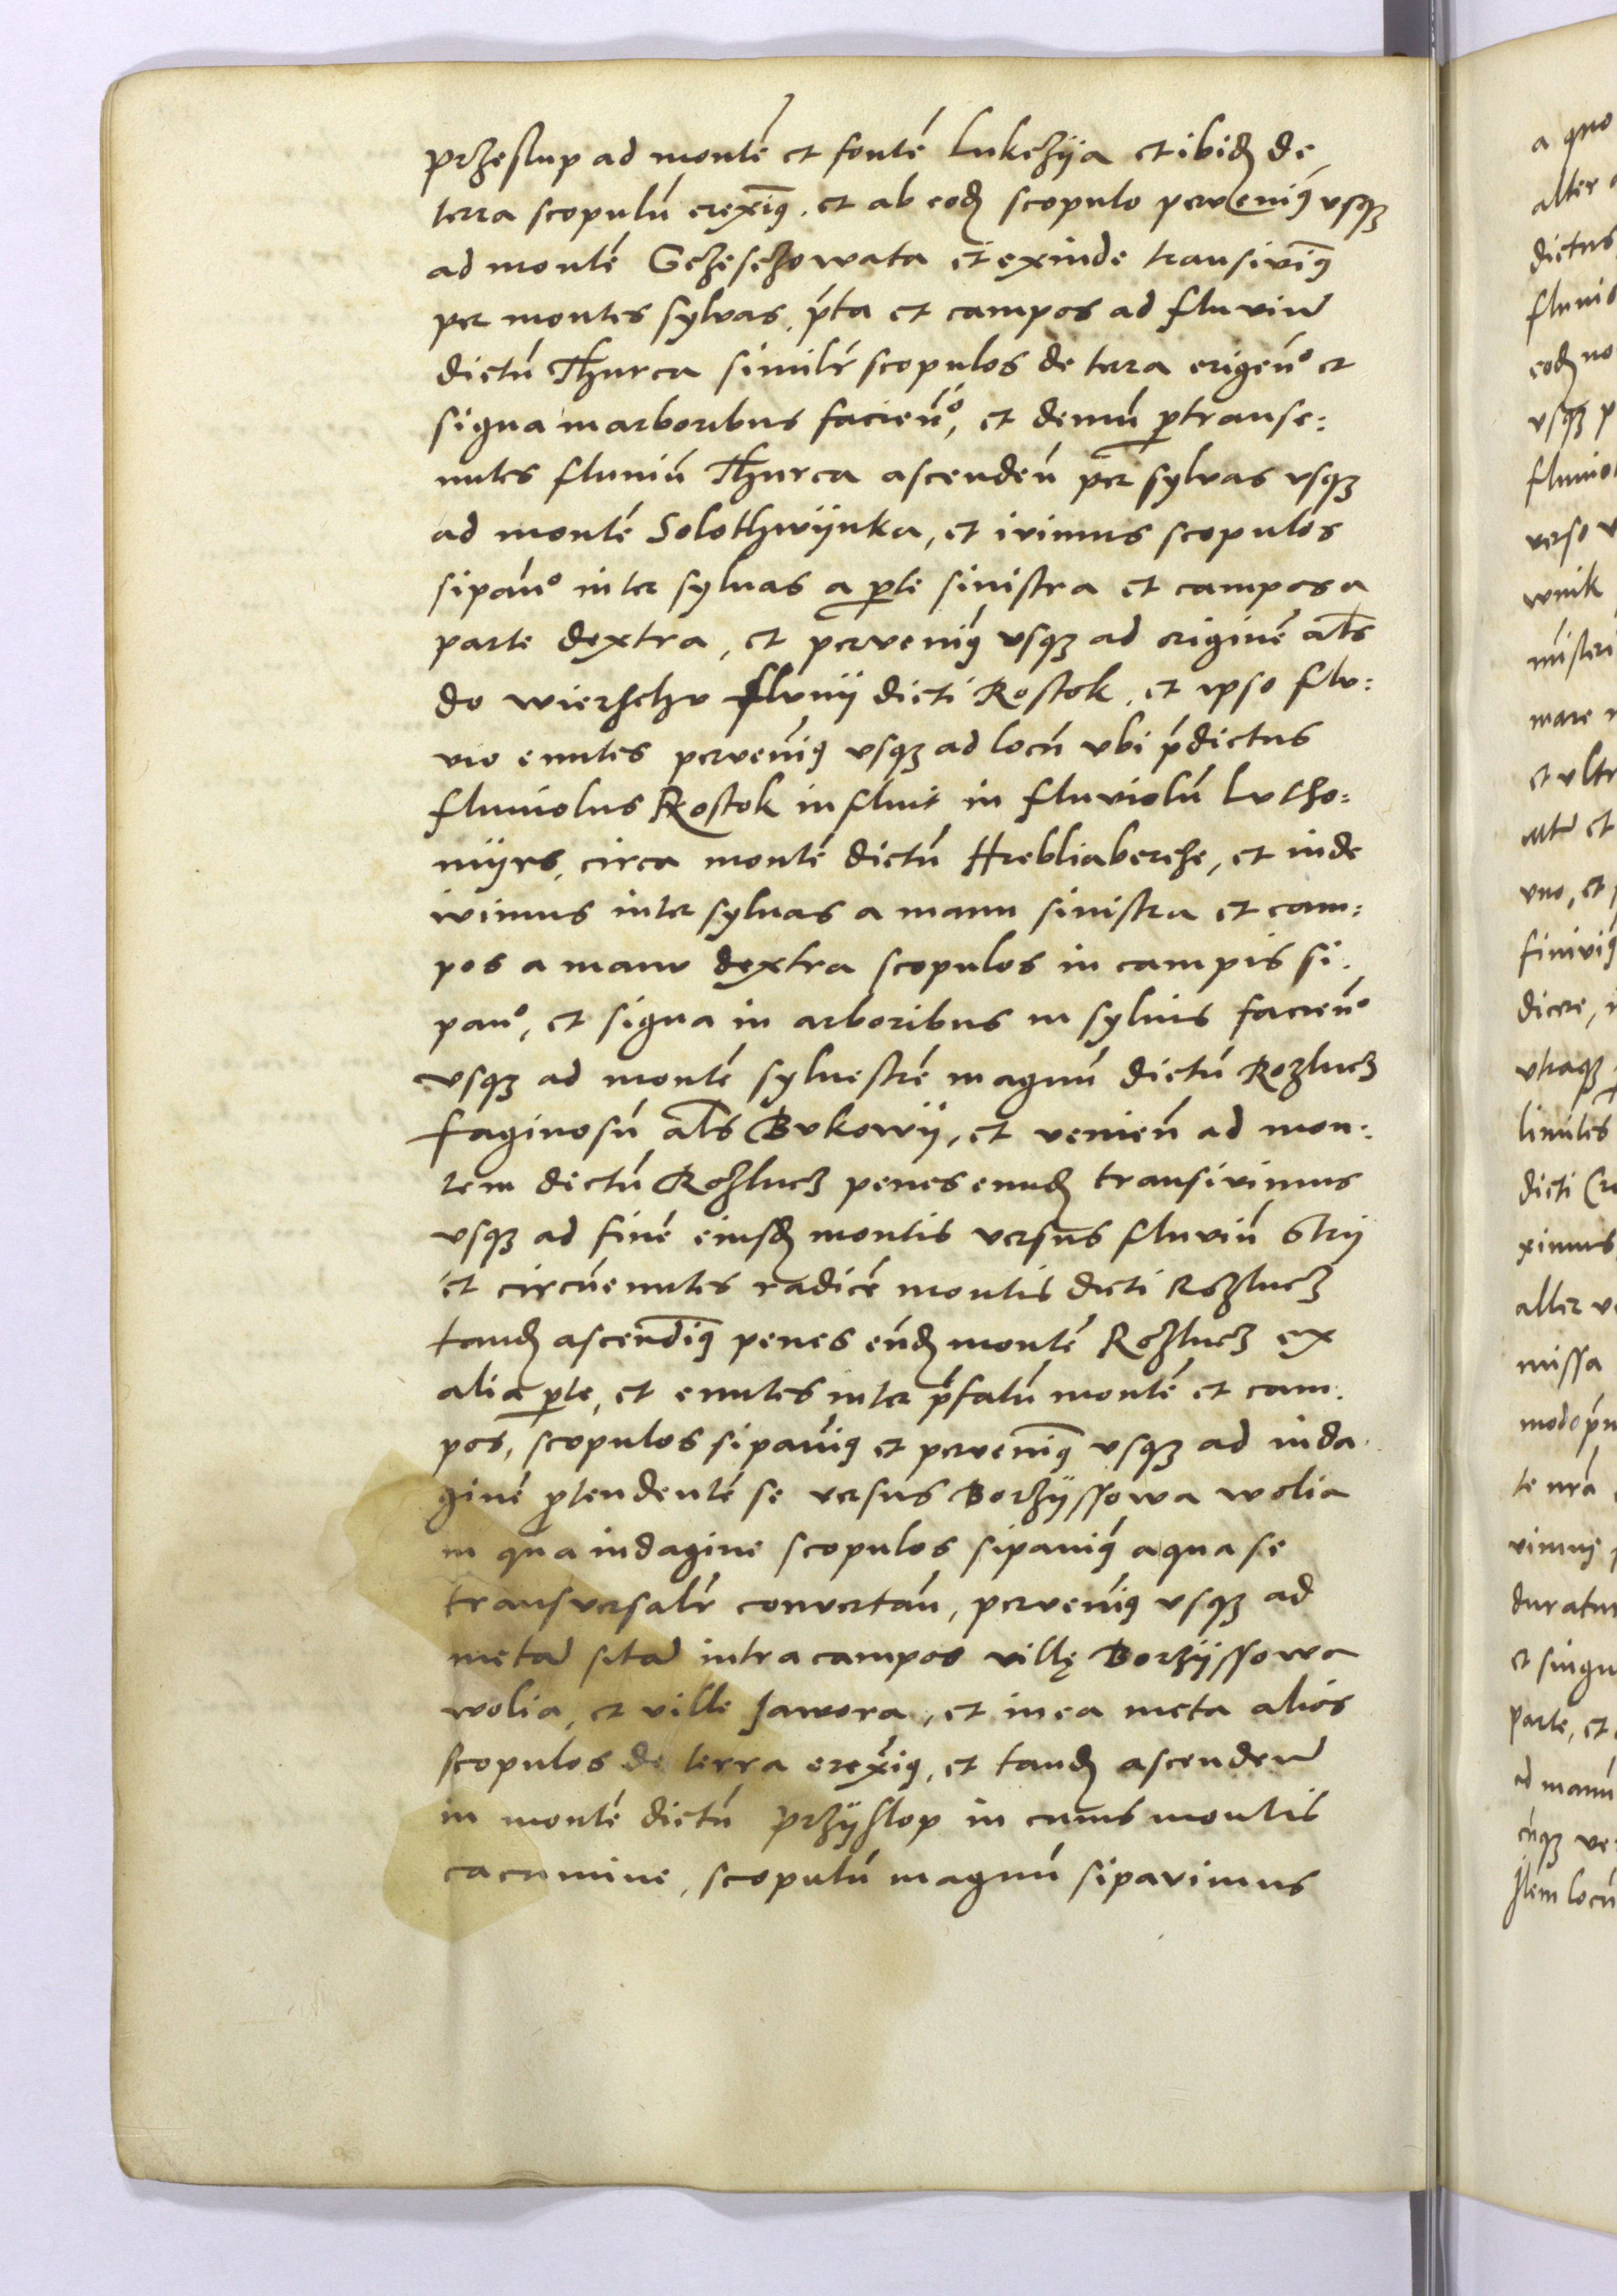 przeslup ad montē et fontē Lukczÿa et ibid de
terra scopulū erexim9. et ab eod scopulo pervenim9 vsqz
ad montē Gczesczowata et exinde transivim9
per montes sylvas, pta et campos ad fluviu
dictū Thurca similr scopulos de terra erigen° et
signa in arboribus facien°, et demū ptranse:
untes fluviū Thurca ascenden per sylvas vsqz
ad montē Solothwÿnka, et ivimus scopulos
sipan° inter sylvas a pte sinistra et campos a
parte dextra, et pervenim9 vsqz ad originē als
do wierschv flvvii dicti Rostok, et ipso flv:
vio euntes pervenim9 vsqz ad locū vbi pdictus
fluviolus Rostok influit in fluviolū Lvtho:
mÿrs, circa montē dictū Hrebliaberehe, et inde
ivimus inter sylvas a manu sinistra et cam:
pos a manv dextra scopulos in campis si.
pan°, et signa in arboribus in sylvis facien°
vsqz ad montē sylvestrē magnū dictū Rozlucz
faginosū als Bvkowÿ, et venien ad mon:
tem dictū Rozlucz penes eund transivimus
vsqz ad finē eiusd montis versus fluviū Strÿ
et circūeuntes radicē montis dicti Rozlucz
tand ascendim9 penes eūd montē Rozlucz ex
alia pte, et euntes inter pfatū montē et cam.
pos, scopulos sipavim9 et pervenim9 vsqz ad inda.
ginē ptendentē se versus Borzÿssowa wolia
in qua indagine scopulos sipavim9 a qua se
transversalr convertan, pervenim9 vsqz ad
meta sita intra campos villę Borzÿssowa
wolia, et ville Jawora, et in ea meta alios
scopulos de terra erexim9, et tand ascenden
in montē dictū Przÿslop in cuius montis
cacumine, scopulū magnū sipavimus
a quo
alter
dictus
fluvio
eod no
vsqz p
fluvio
verso v
wnik
misteri
mare
et vltr
et
vno, et
finivim9
dicere,
vtraqz
limites
dicti
ximus
alter ve
missa
modo
te nrā
vimus
duratur
et singu
parte, et
ad manū
cūqz ve
Item locū